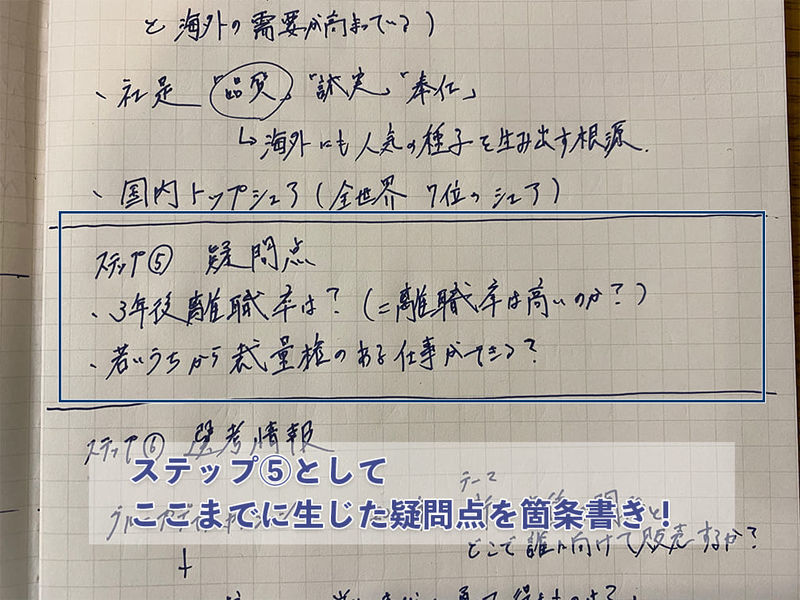 と海外の需要が高まっている)
、社是 「品質」「誠実」「奉仕」
↳海外にも人気の種子を生み出す根源.
、国内トップシェア(全世界 7位のシェア)
ステップ⑤ 疑問点
、3年後離職率は?(=離職率は高いのか?)
、若いうちから裁量権のある仕事ができる?
ステップ⑥ 選考情報
ステップ⑤として
ここまでに生じた疑問点を箇条書き!
テーマ
どこで誰に向けて販売するか?